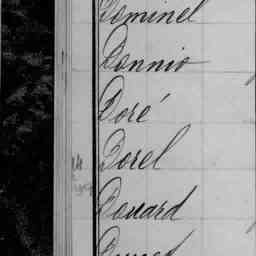 Dominel
Donnio
Doré
Dorel
Douard